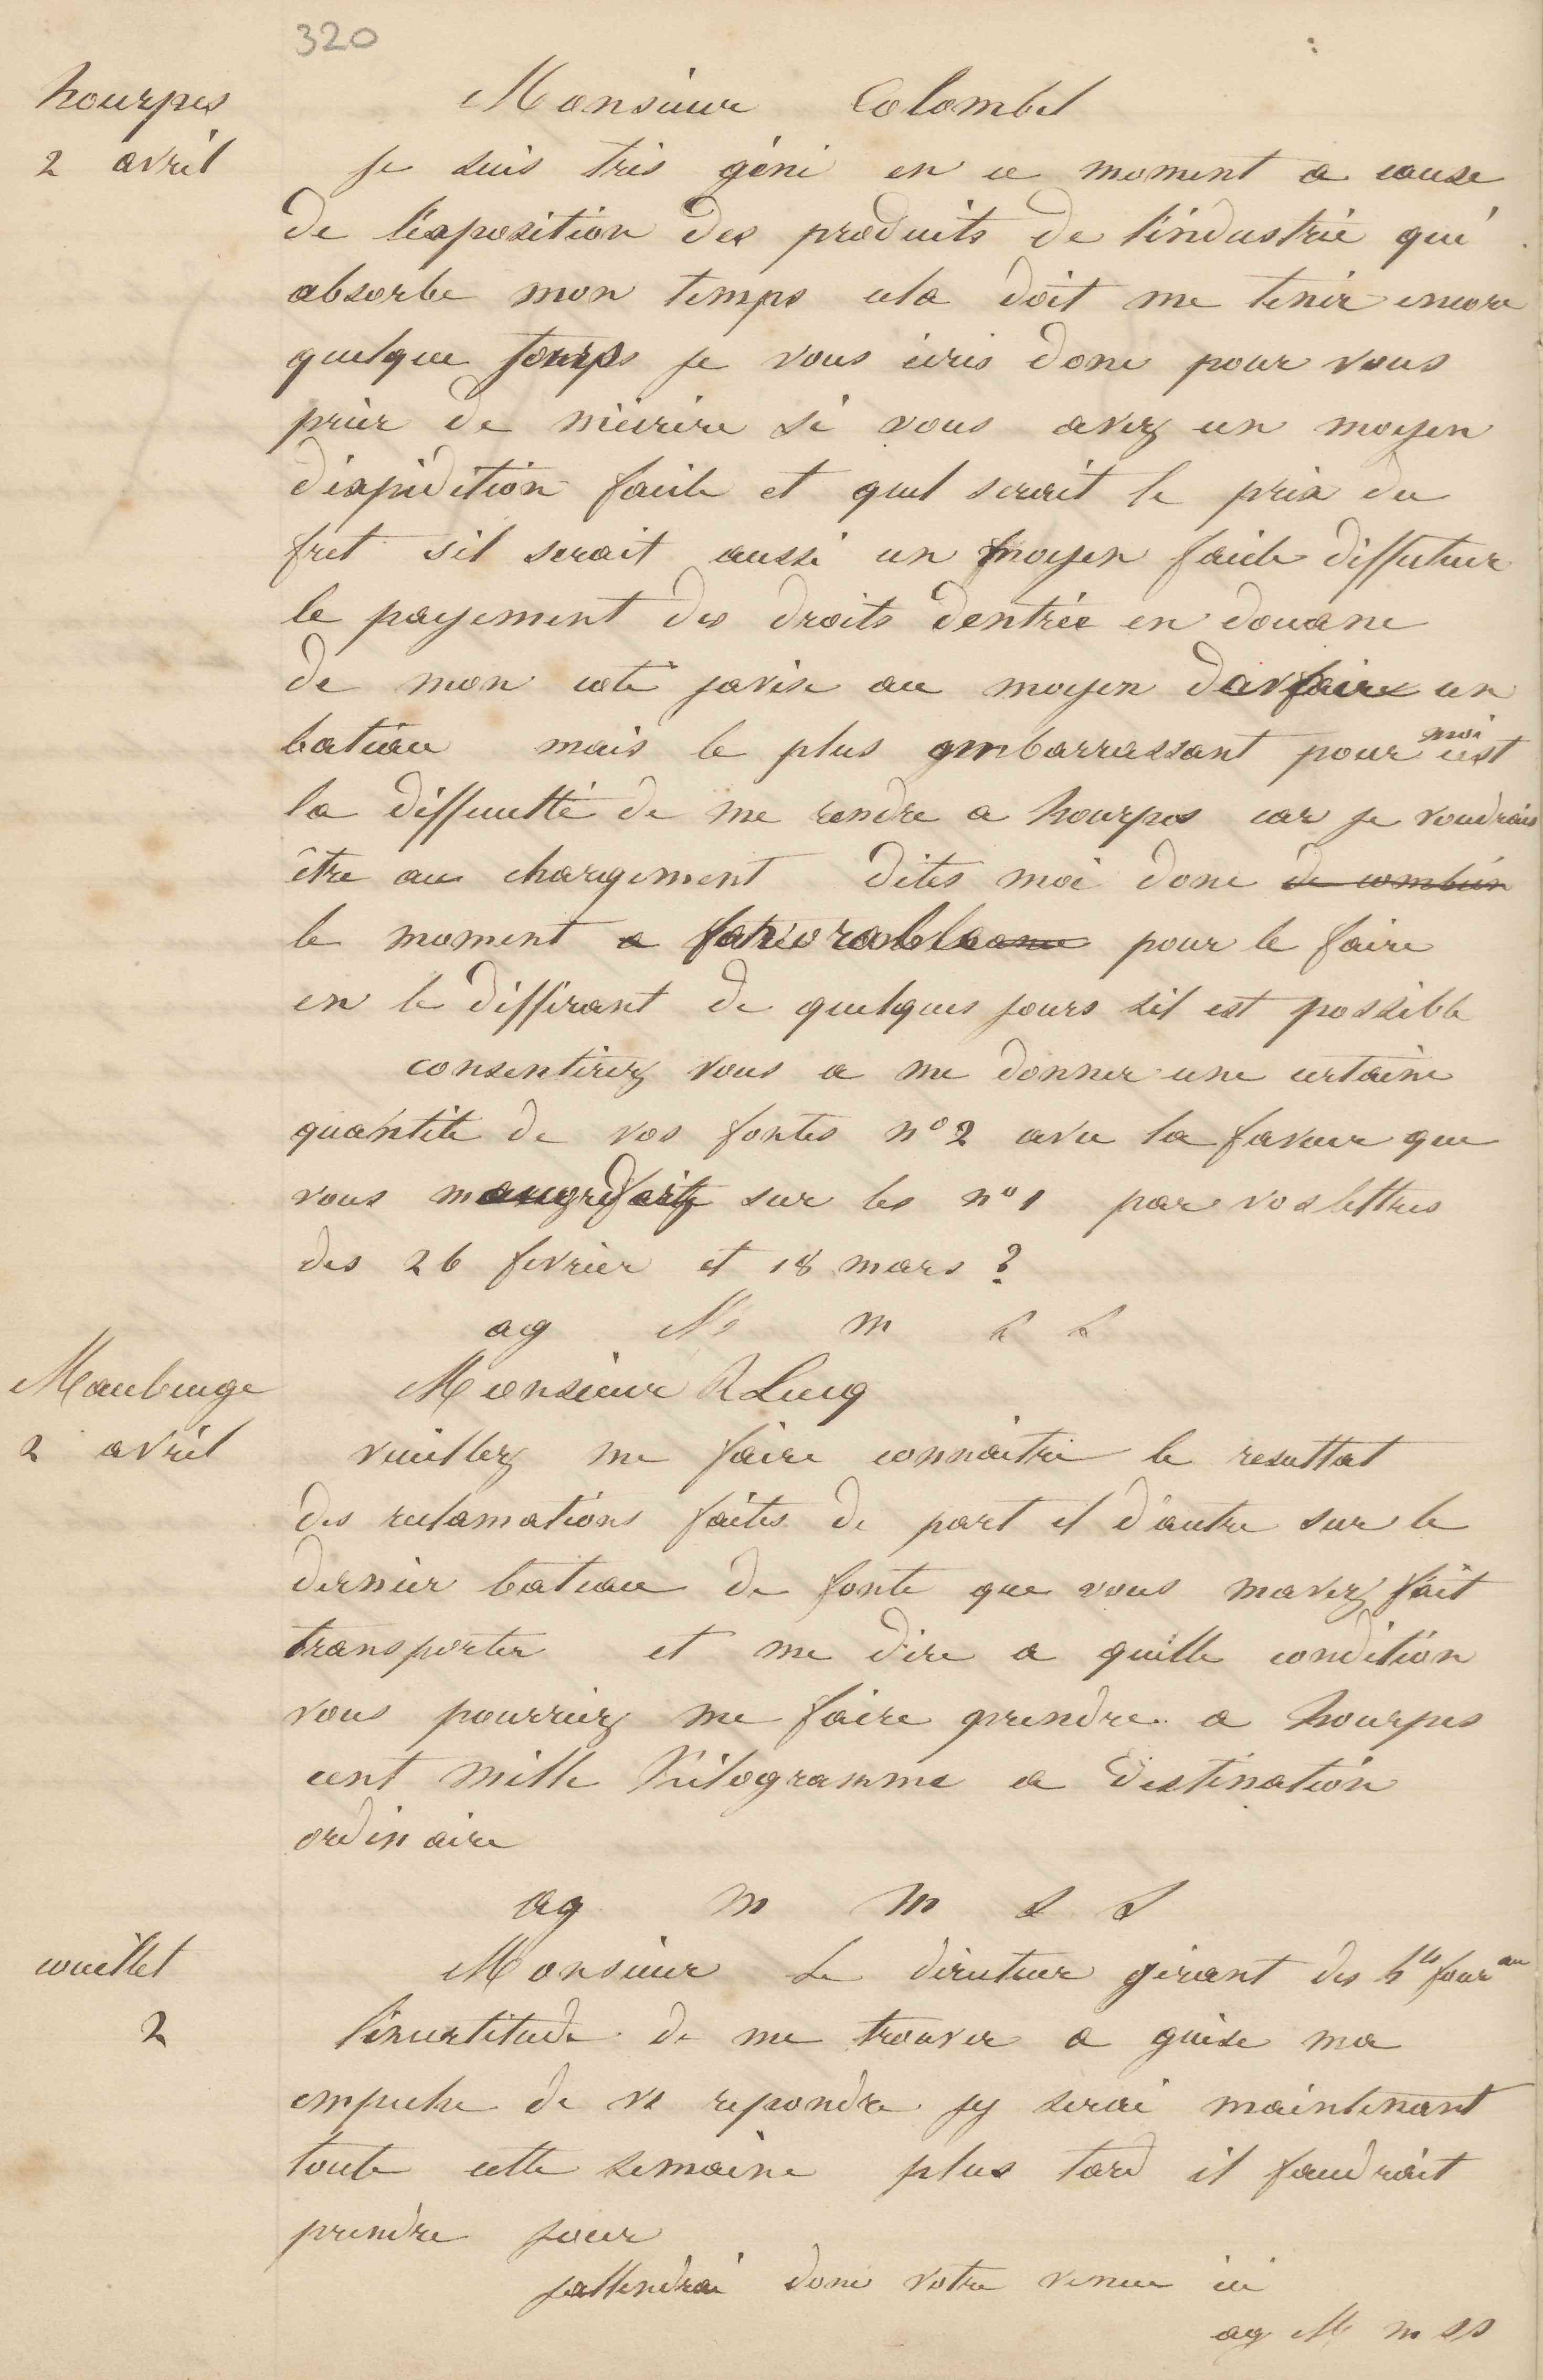 320
hourpes
Monsieur Colombel
2 avril
Je suis très géné en ce moment a cause
de l'exposition des produits de l'industrie qui
absorbe mon temps cela doit me tenir encore
quelque temps je vous écris donc pour vous
prier de m'écrire si vous avez un moyen
d'expédition facile et quel serait le prix du
fret sil serait aussi un moyen facile d'effectuer
le payement des droits dentrée en douane
de mon coté javise au moyen davoir un
bateau mais le plus embarrassant pour moi c'est
la difficulté de me rendre a hourpes car je voudrais
être au chargement dites moi donc de combien
le moment a favorable pour le faire
en le différant de quelques jours sil est possible
consentirez vous a me donner une certaine
quantité de vos fontes n° 2 avec la faveur que
vous sur les n° 1 par vos lettres
des 26 fevrier et 18 mars ?
ag M m s s
Maubeuge
Monsieur R Lucq
2 avril
veuillez me faire connaitre le resultat
des reclamations faites de part et d'autre sur le
dernier bateau de fonte que vous mavez fait
transporter et me dire a quelle condition
vous pourriez me faire prendre a hourpes
cent mille Kilogramme a destination
ordinaire
ag m m s s
couillet
Monsieur Le directeur gérant des hts fourau
2
l'incertitude de me trouver a guise ma
empeche de vs repondre jy serai maintenant
toute cette semaine plus tard il faudrait
prendre jour
jattendrai donc votre venue ici
ag M m s s